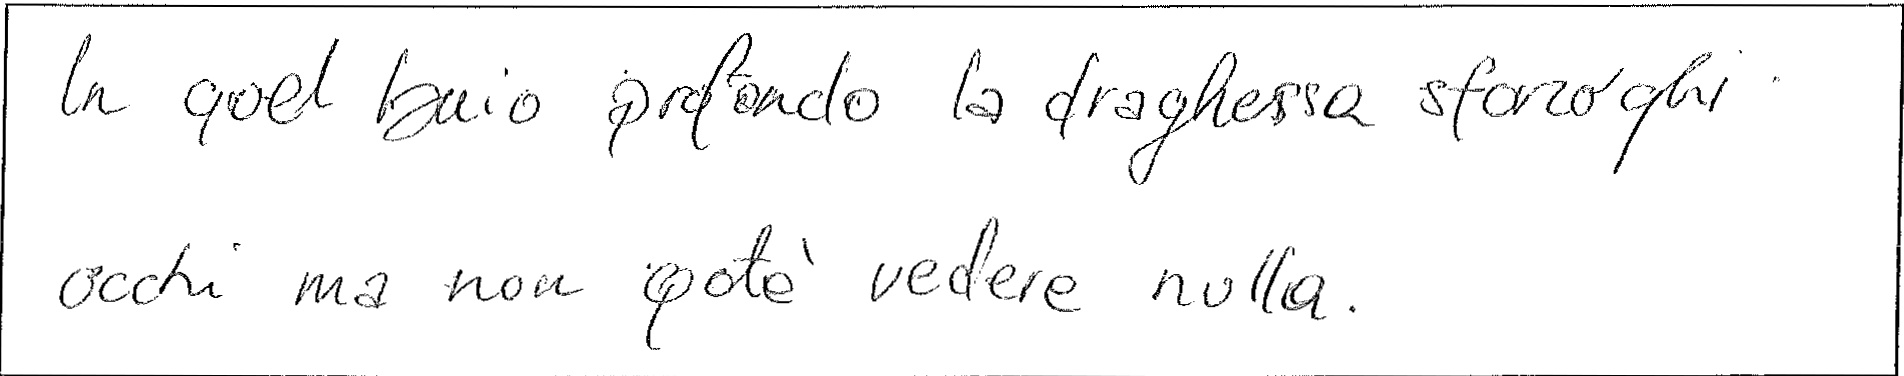 In quel buio profondo la draghessa sforzò ghi
occhi ma non potè vedere nulla.